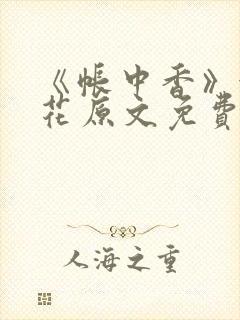 《帐中香》
花原文免費
人海之重